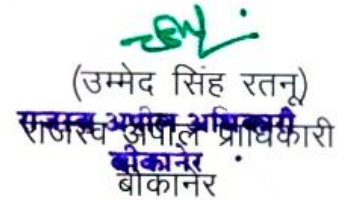 (उम्मेद सिंह रतनू)
राजस्व अपील अधिकारी
राजस्व अपील प्राधिकारी
बीकानेर
बीकानेर